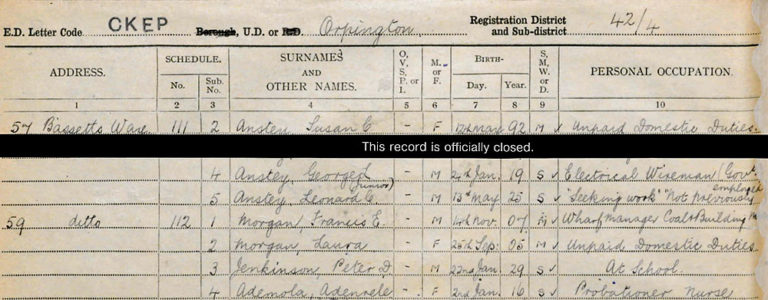 E.D. Letter Code CKEP Borough, U.D. or R.D. Orpington Registration District and Sub-district 42/4
ADDRESS. SCHEDULE. No. Sub. No. SURNAMES AND OTHER NAMES. O, V, S, P. or I. M. or F. BIRTH- Day. Year. S, M, W, or D. PERSONAL OCCUPATION.
1 2 3 4 5 6 7 8 9 10
57 Bassetts Way 111 2 Anstey, Susan C - F May 92 M Unpaid Domestic Duties
This record is officially closed.
4 Anstey, George L (Junior) - M 24th Jan. 19 S Electrical Wireman (Govt
5 Anstey, Leonard C. - M 13th May 25 S "Seeking work" Not previously employed
59 ditto 112 1 Morgan, Francis E. - M 14th Nov. 07 M Wharf manager Coal & Building
2 Morgan, Laura - F 25th Sep. 05 M Unpaid Domestic Duties
3 Jenkinson, Peter D - M 22nd Jan. 29 S At School.
4 Ademola, Adenrele - F 2nd Jan. 16 S Probationer Nurse